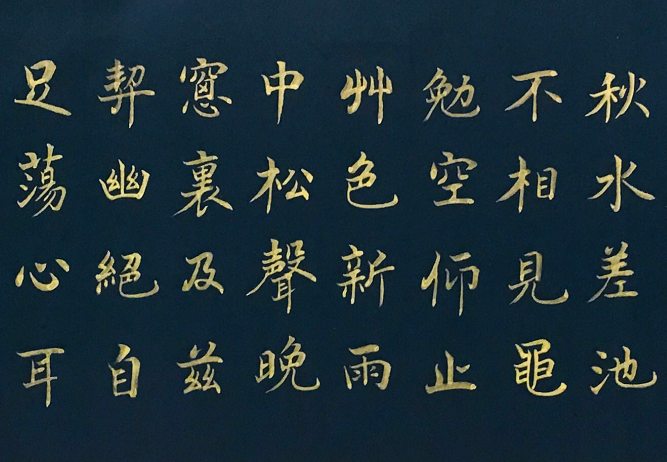 秋水差池
不相見黽
勉空仰止
艸色新雨
中松聲晚
窻裏及茲
契幽絕自
足蕩心耳